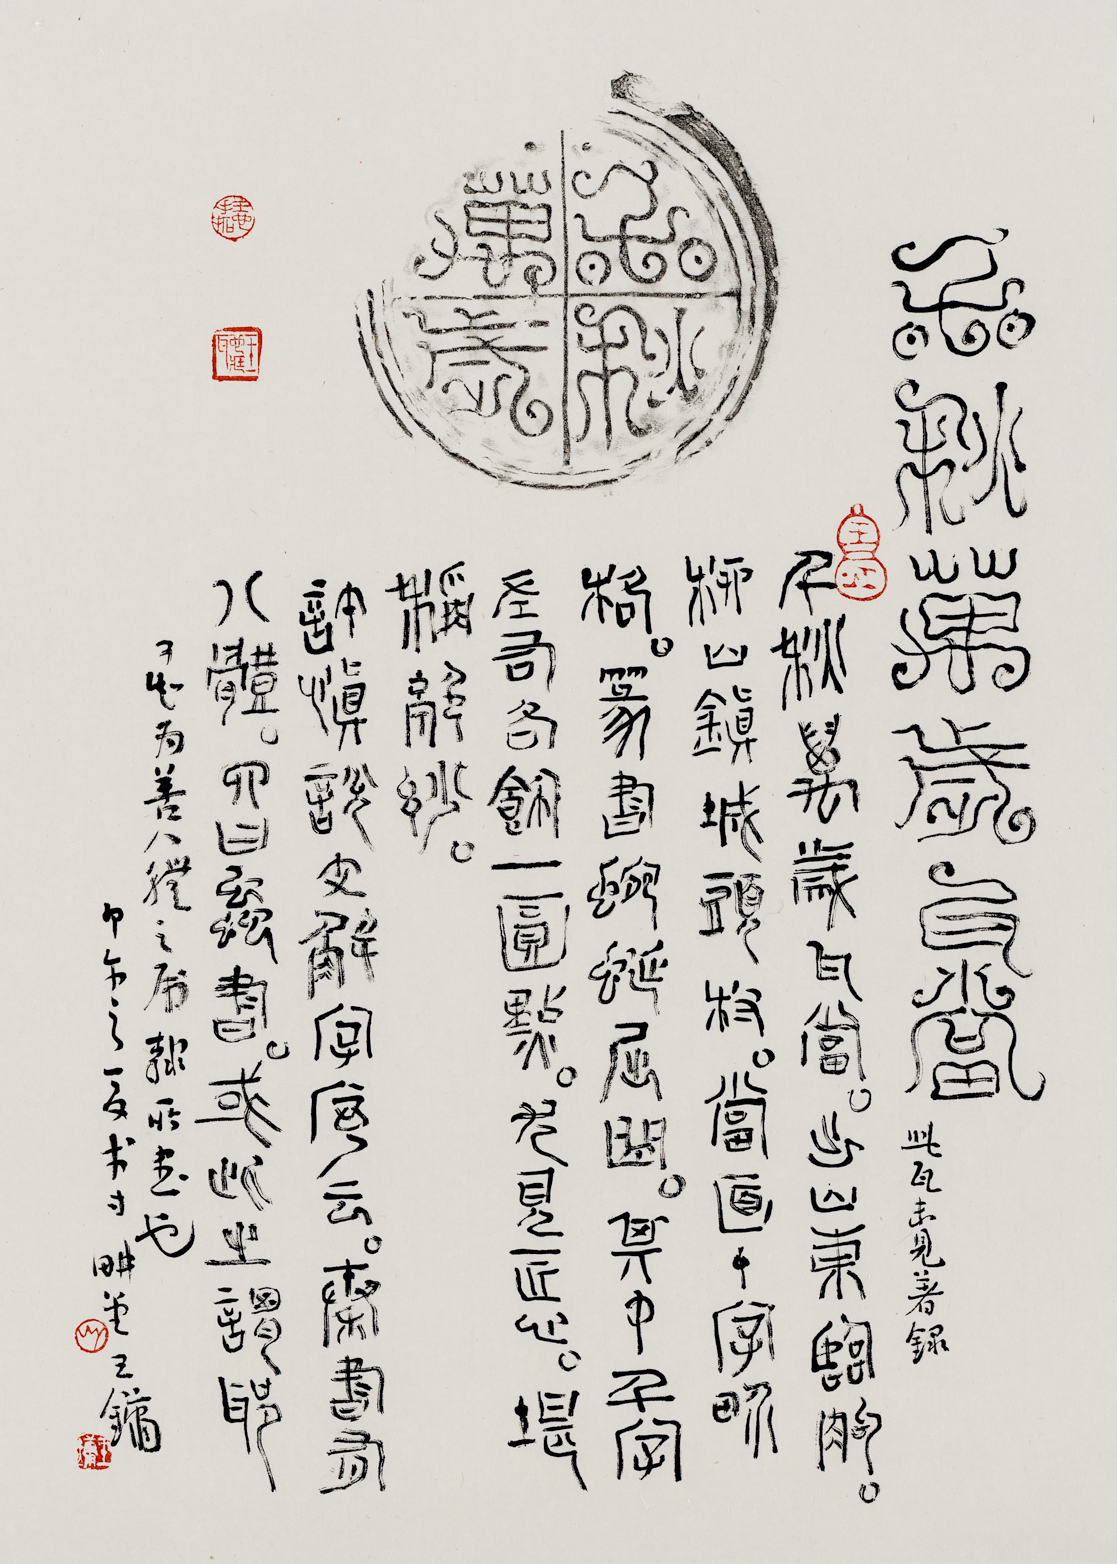 千秋萬歲瓦當
此瓦未見著錄
千秋萬歲
千秋萬歲瓦當。出山東臨朐。
柳山鎮城頭村。當面十字界
格。篆書蜿蜒屈曲。其中千字
左右各飾一圓點。尤見匠心。堪
稱絕妙。
許慎說文解字序云。秦書有
八體。四曰蟲書。或此之謂耶
為善八體之所書也
甲午之夏於寸畊堂王鏞